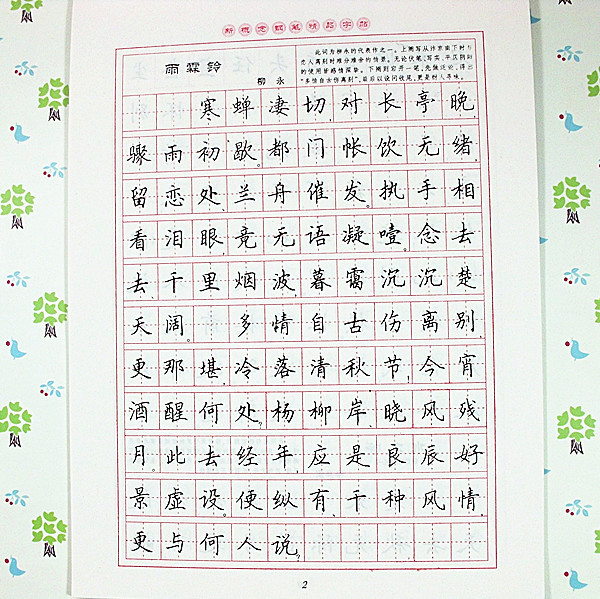 新概念钢笔精品字帖
雨霖铃
柳永
此词为柳永的代表作之一。上阕写从汴京南下时与
恋人离别时难分难舍的情景。无论伏笔、写实、平仄阴阳
的使用皆感情深挚。下阕则宕开一笔,先做泛论,得出
“多情自古伤离别”,最后以设问收尾,更是耐人寻味。
寒蝉凄切,对长亭晚,
骤雨初歇。都门帐饮无绪,
留恋处、兰舟催发。执手相
看泪眼,竟无语凝噎。念去
去、千里烟波,暮霭沉沉楚
天阔。多情自古伤离别,
更那堪、冷落清秋节,今宵
酒醒何处。杨柳岸、晓风残
月。此去经年,应是良辰好
景虚设。便纵有、千种风情,
更与何人说?
2